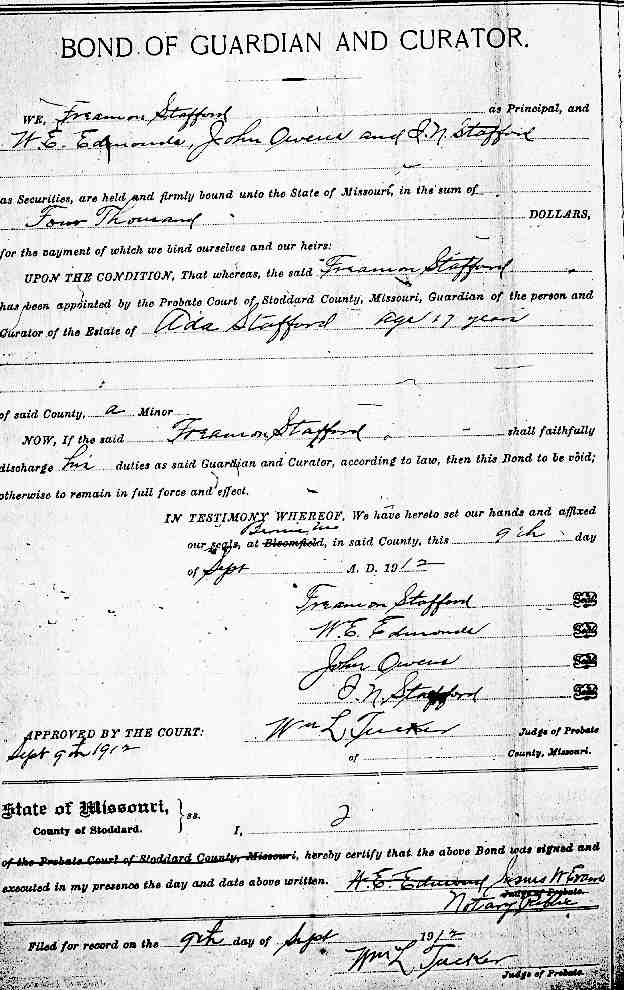 BOND OF GUARDIAN AND CURATOR.
WE, Freamon Stafford as Principal, and
W. E. Edmonds, John Owens and I. N. Stafford
as Securities, are held and firmly bound unto the State of Missouri, in the sum of
Four Thousand DOLLARS,
for the payment of which we bind ourselves and our heirs:
UPON THE CONDITION, That whereas, the said Freamon Stafford
has been appointed by the Probate Court of Stoddard County, Missouri, Guardian of the person and
Curator of the Estate of Ada Stafford age 17 years
of said County, a Minor
NOW, If the said Freamon Stafford, shall faithfully
discharge his duties as said Guardian and Curator, according to law, then this Bond to be void;
otherwise to remain in full force and effect.
IN TESTIMONY WHEREOF, We have hereto set our hands and affixed
our seals, at Bloomfield, in said County, this 9th day
of Sept A. D. 1912
Freamon Stafford Seal
W. E. Edmonds Seal
John Owens Seal
I. N. Stafford Seal
APPROVED BY THE COURT: Wm L Tucker Judge of Probate
Sept 9th 1912 of County, Missouri.
State of Missouri, } ss.
County of Stoddard. I,
of the Probate Court of Stoddard County, Missouri, hereby certify that the above Bond was signed and
executed in my presence the day and date above written. W. E. Edmonds
Judge of Probate.
Notary Public
Filed for record on the 9th day of Sept 1912
Wm L Tucker
Judge of Probate.